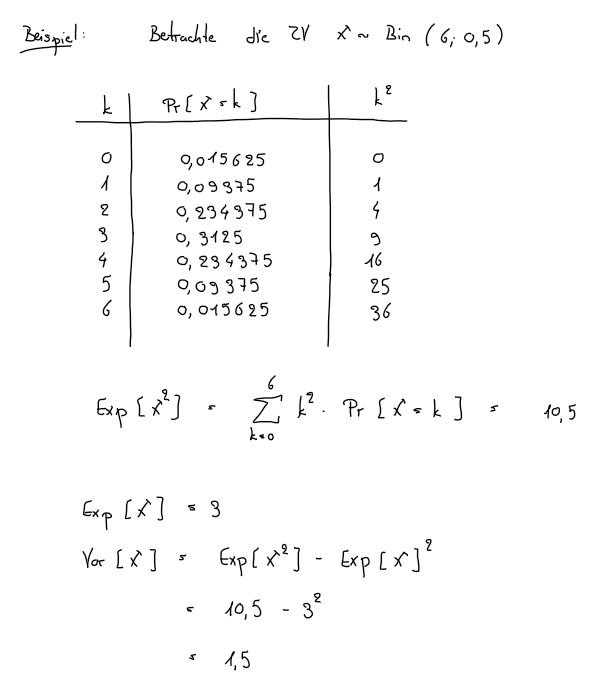 Beispiel: Betrachte die ZV X ~ Bin (6; 0,5)
k Pr[X = k] k²
0 0,015625 0
1 0,09375 1
2 0,234375 4
3 0,3125 9
4 0,234375 16
5 0,09375 25
6 0,015625 36
Exp [X²] = ∑_{k=0}^{6} k² · Pr [X = k] = 10,5
Exp [X] = 3
Var [X] = Exp[X²] - Exp[X]²
= 10,5 - 3²
= 1,5